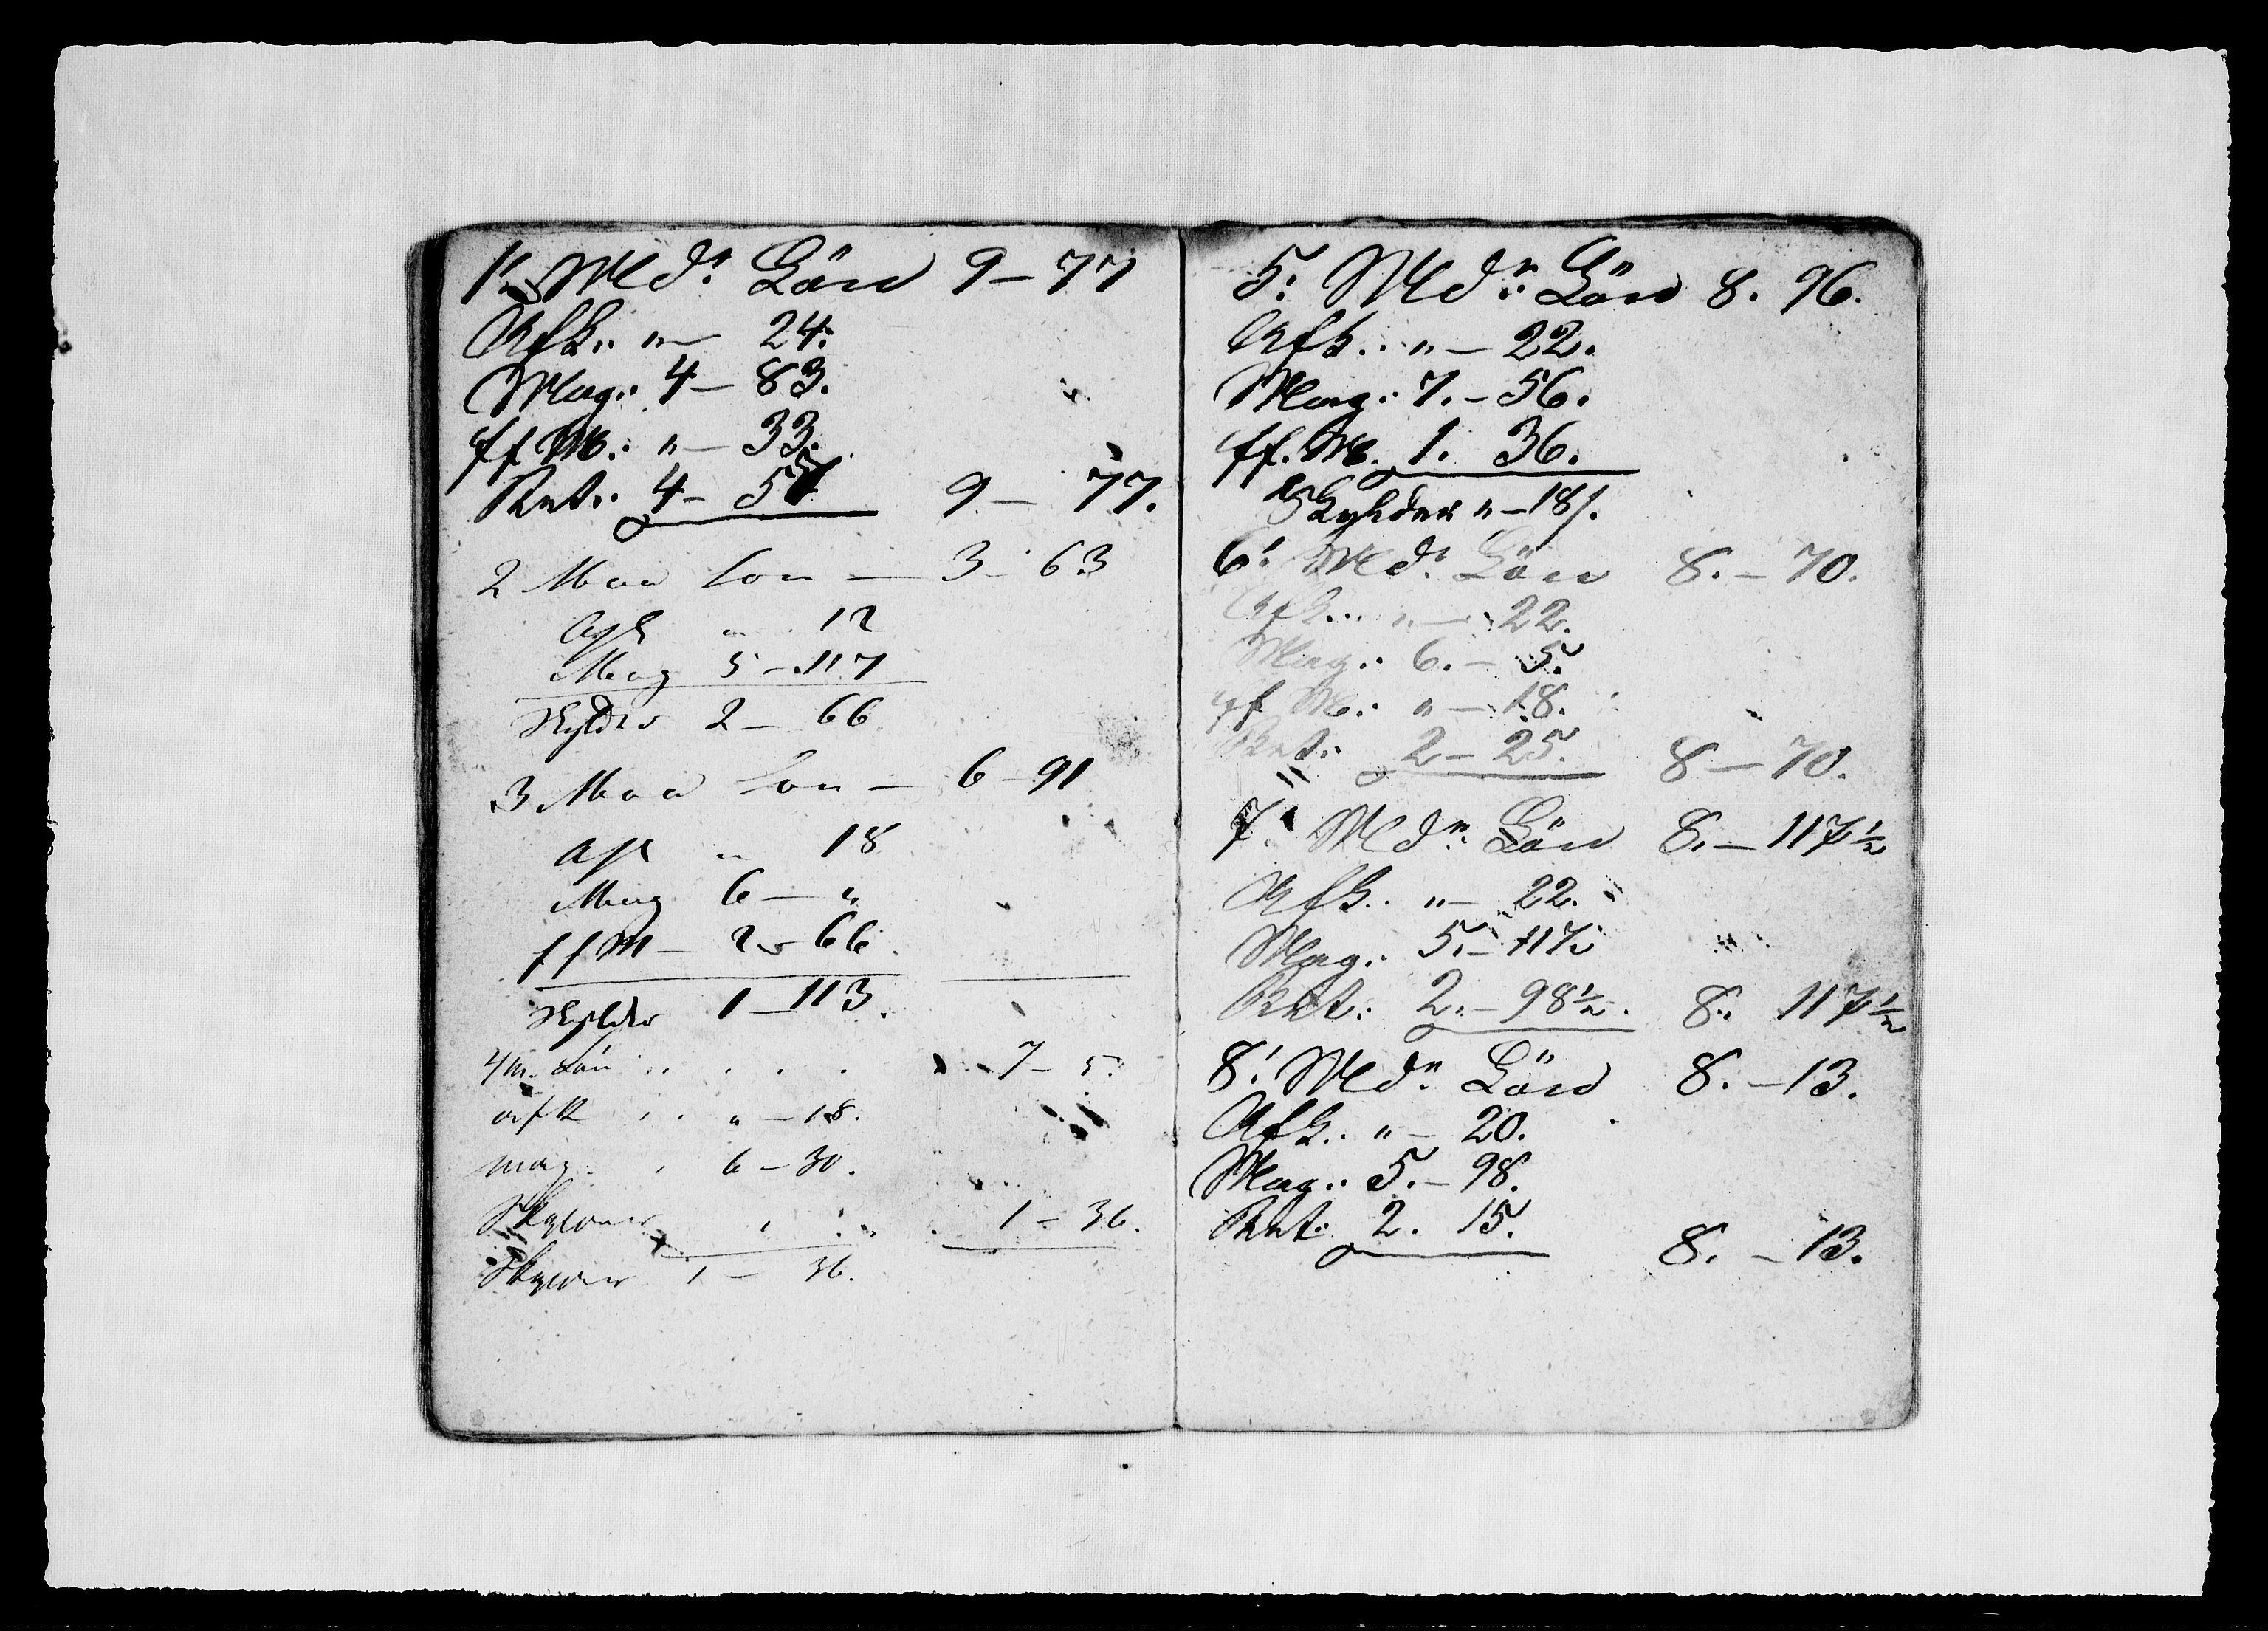 1! Md: Lön 9 – 77
Afk: " – 24.
Mag: 4 – 83.
ff M: " – 33.
Rest: 4 – 57 9 – 77.
2 Maa Lon – 3 – 63
Afk " 12
Mag 5 – 117
Skylder 2 – 66
3 Maa Lon – 6 – 91
Afk " 18
Mag 6 – "
ffM – 2 – 66.
Skylder 1 – 113.
4 m. Lön 7 – 5.
afk " – 18.
mag 6 – 30.
Skylder 1 – 36.
Skylder 1 – 36.
5! Md: Lön 8. 96.
Afk: " – 22.
Mag: 7. – 56.
ff. M. 1. 36.
Skylder " – 18/.
6! Md: Lön 8. – 70.
Afk: " – 22.
Mag: 6. – 5.
ff M: " – 18.
Rest: 2 – 25. 8 – 70.
7! Md: Lön 8. – 117½
Afk. " – 22.
Mag: 5. – 117.
Rest: 2. – 98½. 8. 117½
8! Md: Lön 8. – 13.
Afk: " – 20.
Mag: 5. – 98.
Rest: 2. 15.
8. – 13.